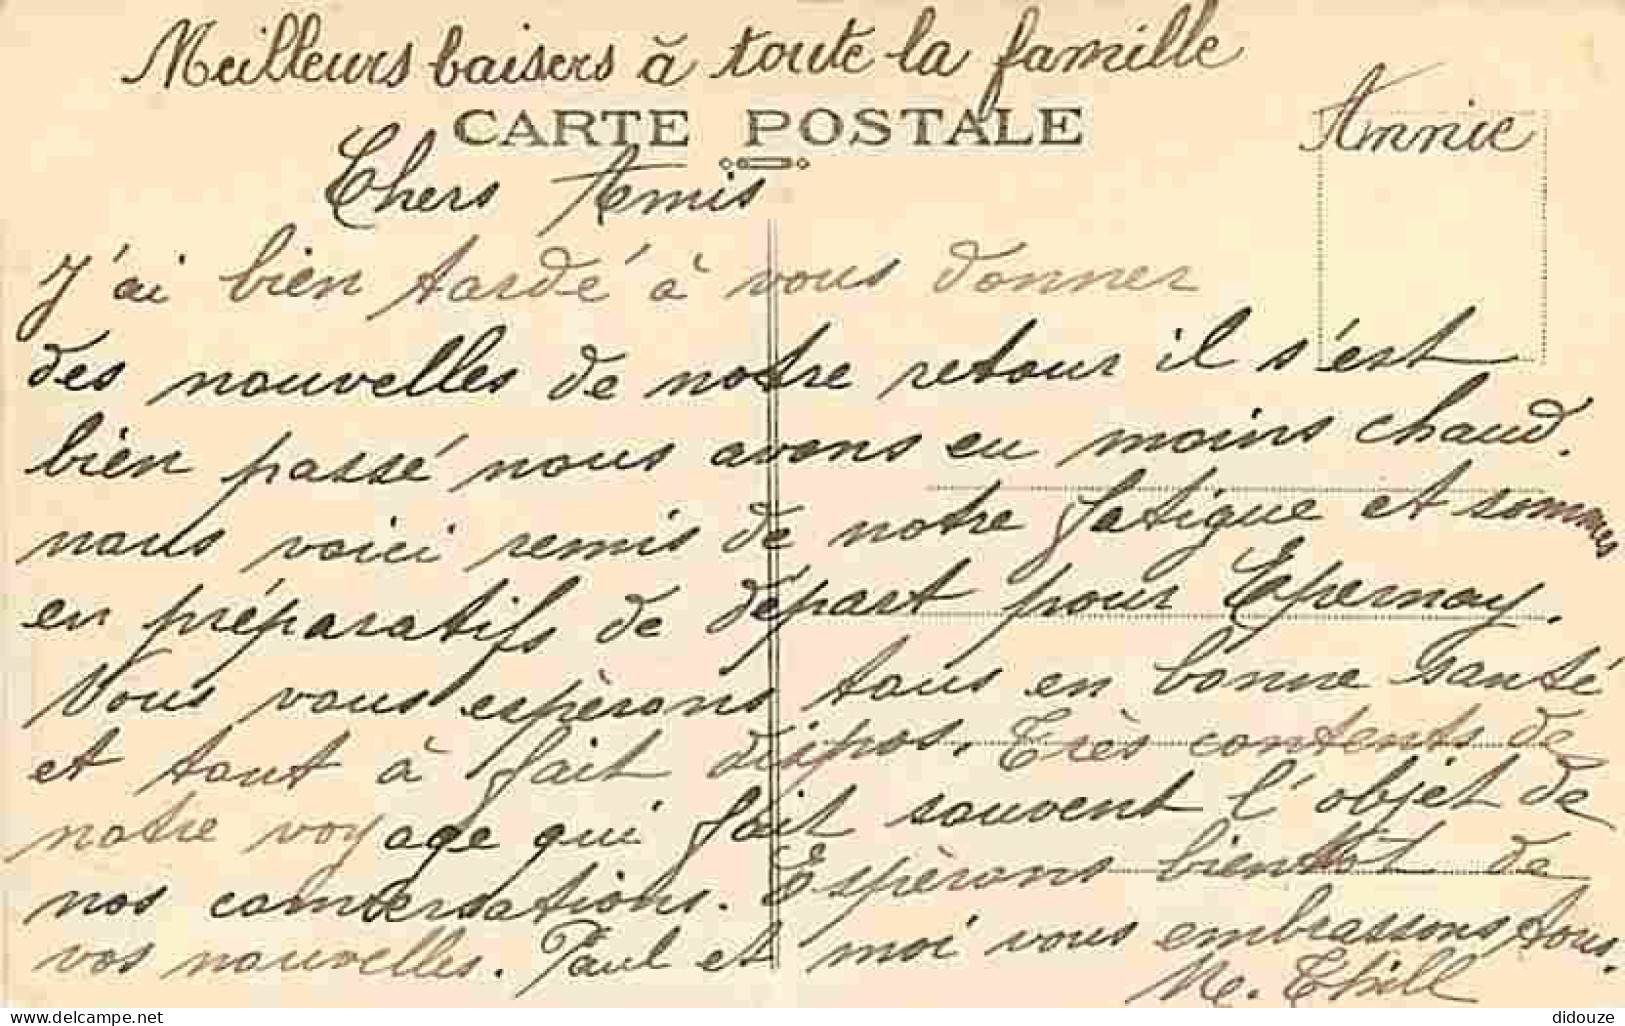 Meilleurs baisers à toute la famille
Annie
CARTE POSTALE
Chers Amis
J'ai bien tardé à vous donner
des nouvelles de notre retour il s'est
bien passé nous avons eu moins chaud.
nous voici remis de notre fatigue et sommes
en préparatifs de départ pour Epernay.
Nous vous espèrons tous en bonne santé
et tout à fait dispos. Très contents de
notre voyage qui fait souvent l'objet de
nos conversations. Espèrons bientot de
vos nouvelles. Paul et moi vous embrassons tous.
M. Thill
www.delcampe.net
didouze